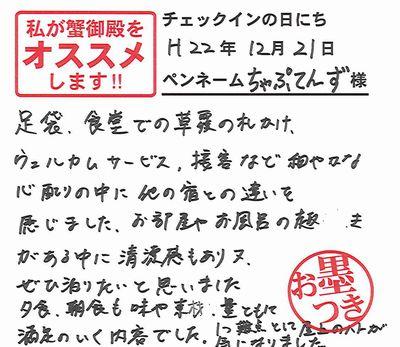 私が蟹御殿を
オススメ
します!!
チェックインの日にち
H22年12月21日
ペンネームちゃぷてんず様
足袋、食堂での草履の札かけ、
ウェルカムサービス、接客など細やかな
心配りの中に他の宿との違いを
感じました、お部屋やお風呂の
がある中に清潔感もあり又、
ぜひ泊りたいと思いました
夕食、朝食も味や素材、量ともに
満足のいく内容でした。
1つ難点として屋上のハトが
気になりました
お墨つき